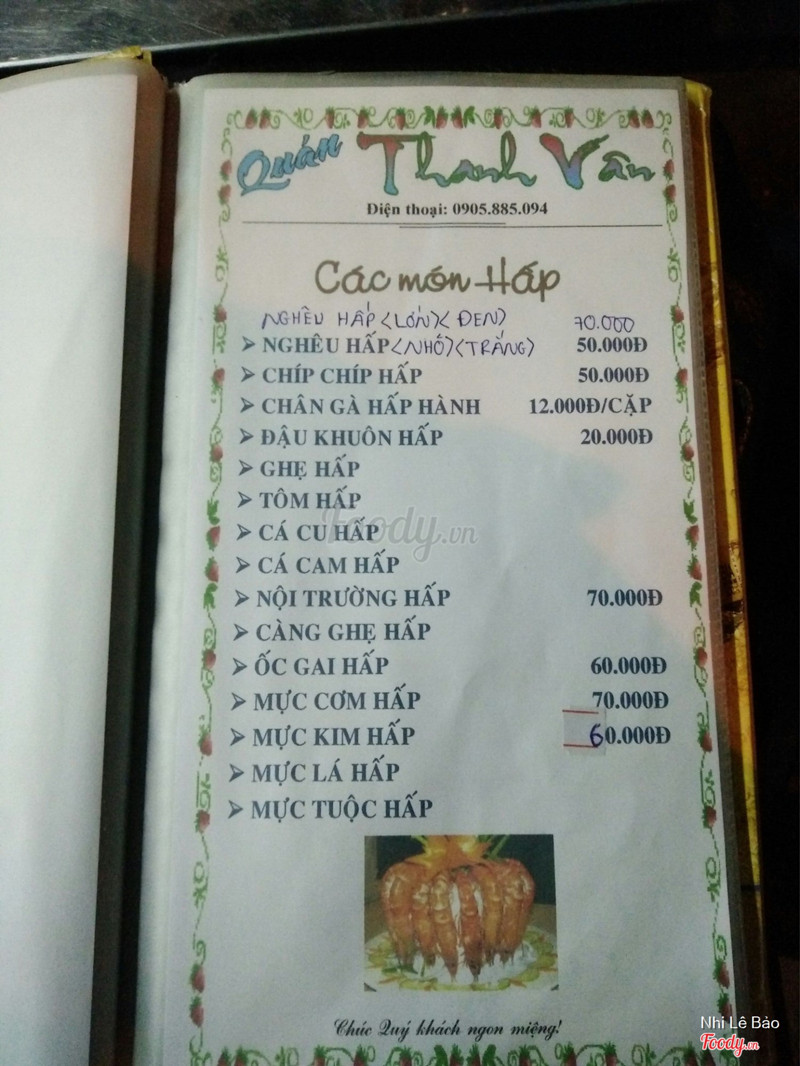 Quán Thanh Vân
Điện thoại: 0905.885.094
Các món Hấp
NGHÊU HẤP <LỚN>< ĐEN> 70.000
➢ NGHÊU HẤP <NHỎ><TRẮNG> 50.000Đ
➢ CHÍP CHÍP HẤP 50.000Đ
➢ CHÂN GÀ HẤP HÀNH 12.000Đ/CẶP
➢ ĐẬU KHUÔN HẤP 20.000Đ
➢ GHẸ HẤP
➢ TÔM HẤP
➢ CÁ CU HẤP
➢ CÁ CAM HẤP
➢ NỘI TRƯỜNG HẤP 70.000Đ
➢ CÀNG GHẸ HẤP
➢ ỐC GAI HẤP 60.000Đ
➢ MỰC CƠM HẤP 70.000Đ
➢ MỰC KIM HẤP 60.000Đ
➢ MỰC LÁ HẤP
➢ MỰC TUỘC HẤP
Chúc Quý khách ngon miệng!
Foody.vn
Nhi Lê Bảo
Foody.vn